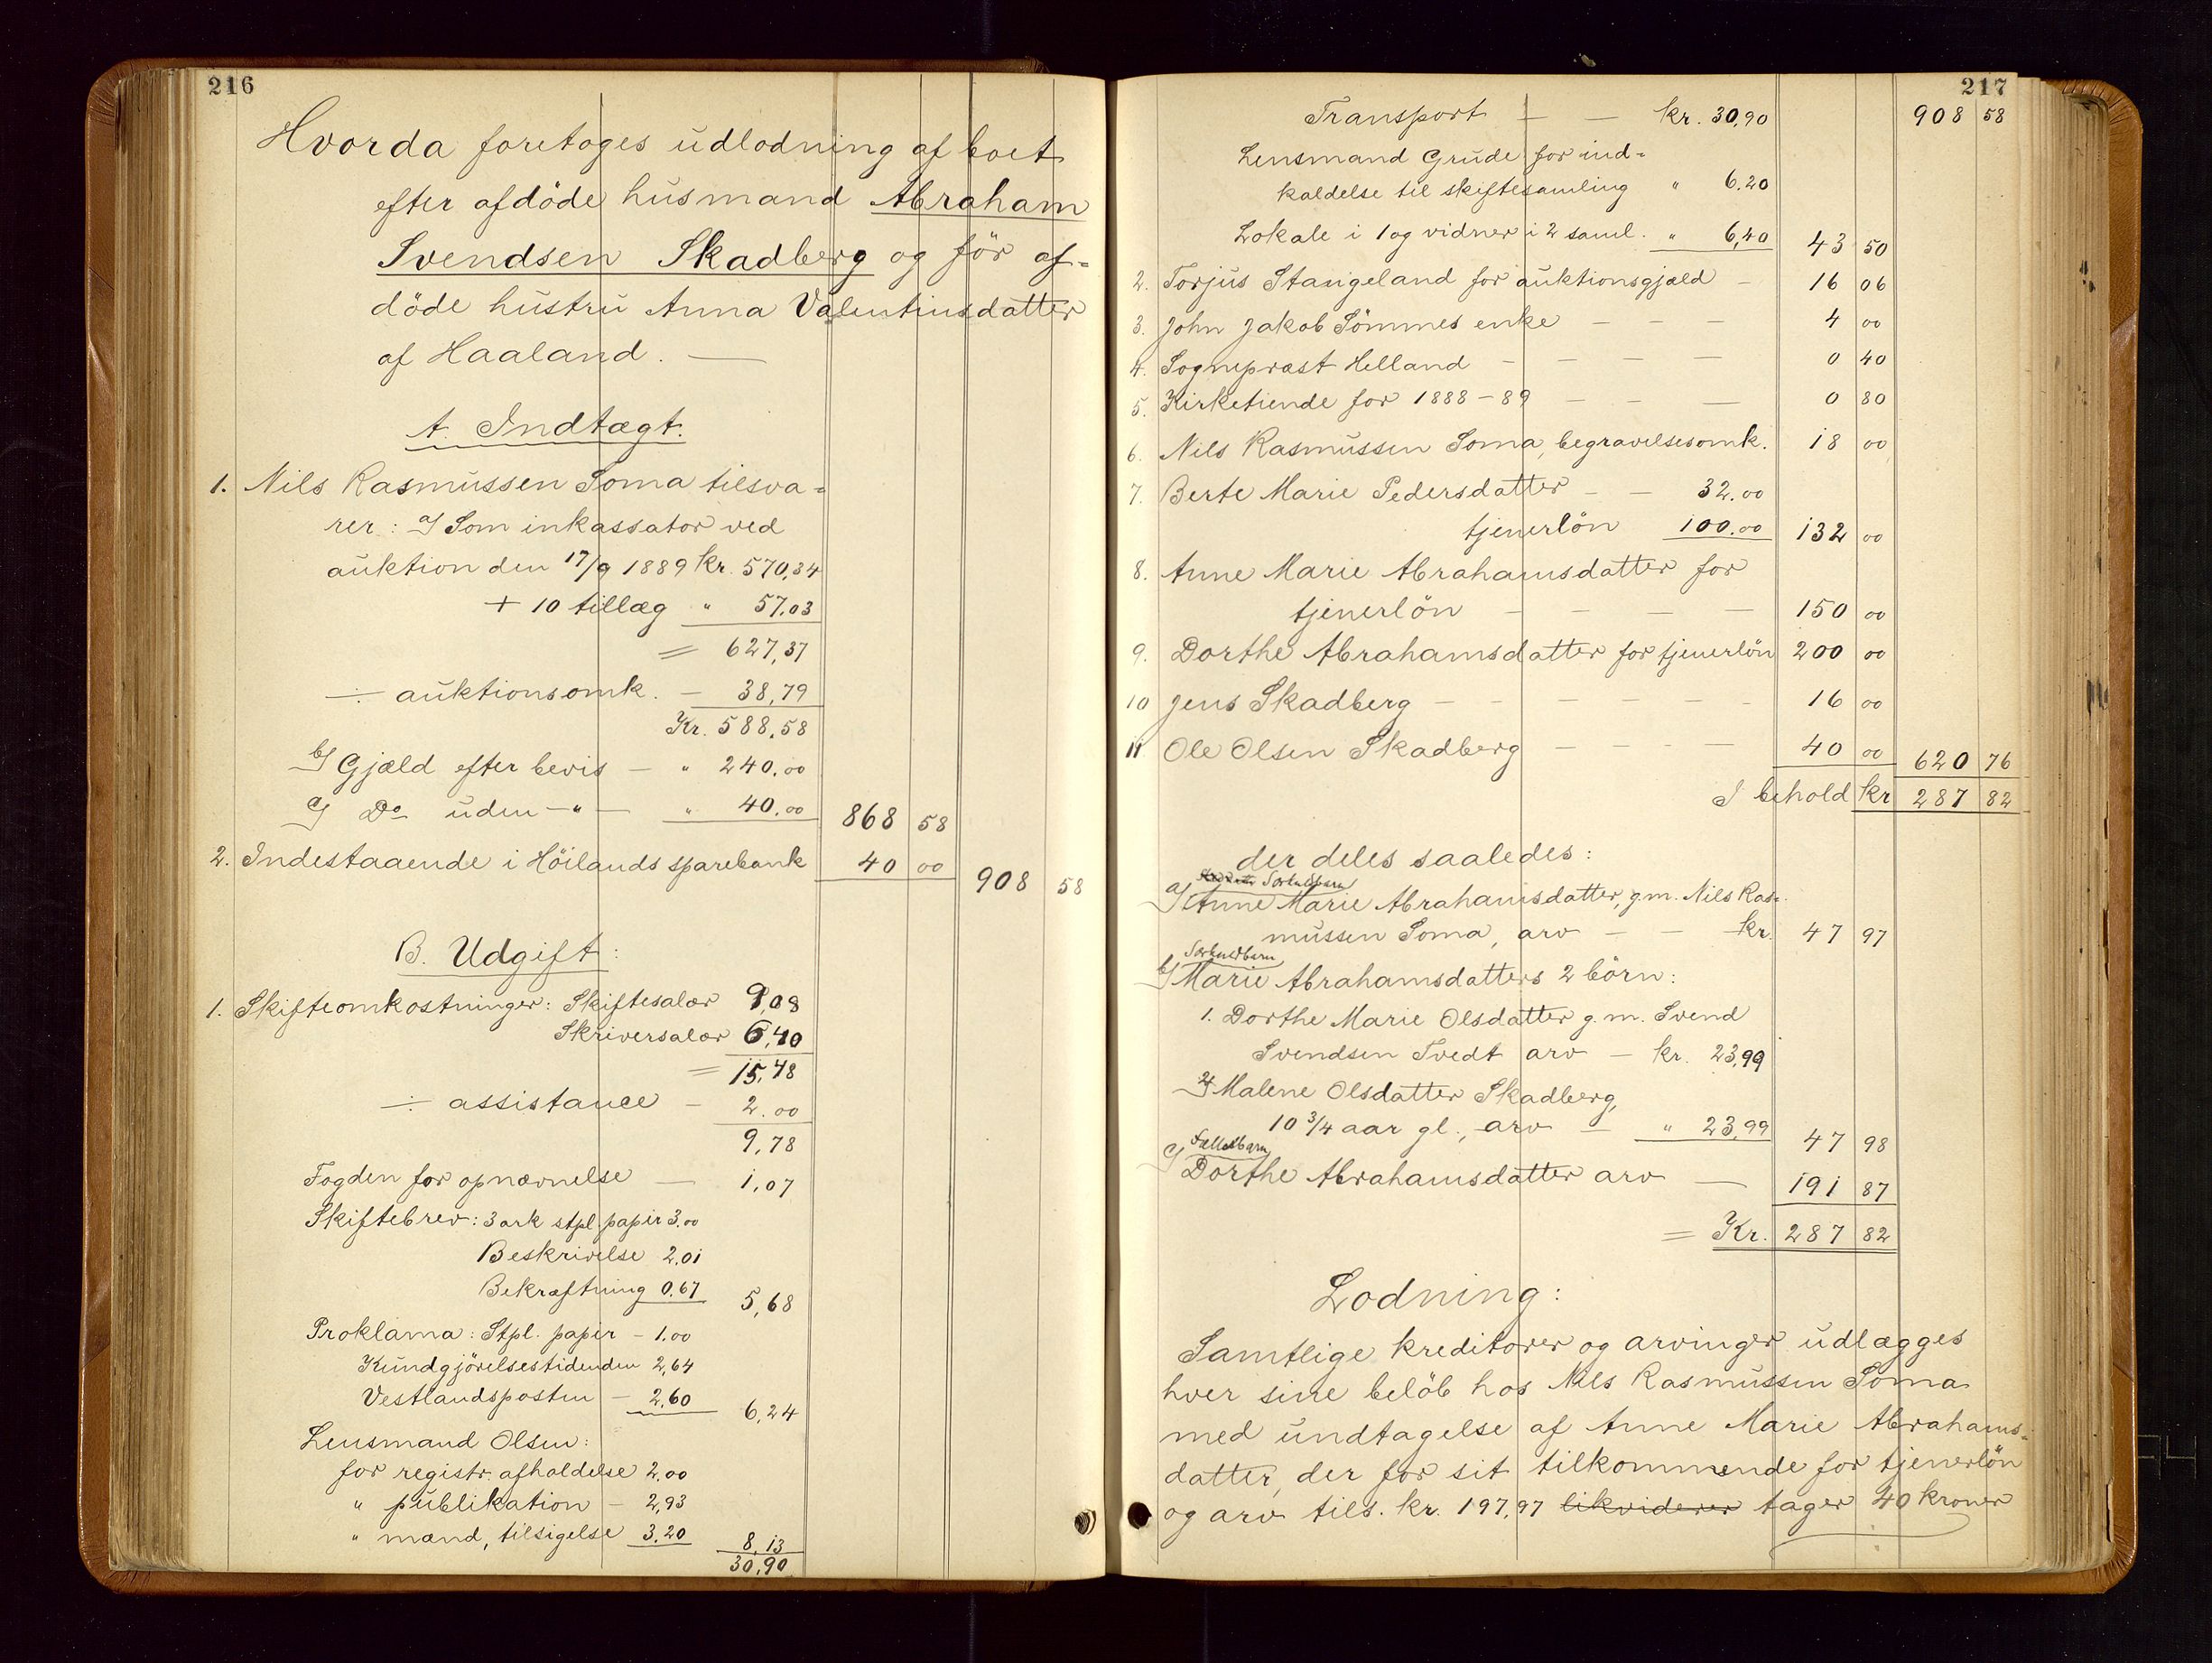 216
Hvorda foretoges udlodning af boet
efter afdöde husmand Abraham
Svendsen Skadberg og för af-
döde hustru Anna Valentinsdatter
af Haaland. —
A. Indtægt.
1. Nils Rasmussen Soma tilsva-
rer: a/ Som inkassator ved
auktion den 17/9 1889 kr. 570,34
+ 10 tillæg " 57.03
= 627,37
÷ auktionsomk. – 38,79
Kr. 588,58
b/ Gjæld efter bevis – " 240.00
c/ Do uden –"– " 40.00 868 58
2. Indestaaende i Höilands sparebank 40 00 908 58
B. Udgift:
1. Skifteomkostninger: Skiftesalær 9,08
Skriversalær 6,40
= 15,48
÷ assistance – 2.00
9,78
Fogden for opnævnelse — 1,07
Skiftebrev: 3 ark stpl. papir 3.00
Beskrivelse 2,01
Bekræftning 0,67 5,68
Proklama: Stpl. papir – 1.00
Kundgjörelsestidenden 2,64
Vestlandsposten – 2,60 6,24
Lensmand Olsen:
for registr. afholdelse 2.00
" publikation – 2,93
" mænd, tilsigelse 3.20 8,13
30,90
217
Transport — — kr. 30,90 908 58
Lensmand Grude for ind-
kaldelse til skiftesamling " 6.20
Lokale i 1 og vidner i 2 saml. " 6,40 43 50
2. Torjus Stangeland for auktionsgjæld – 16 06
3. John Jakob Sömmes enke — — — 4 00
4. Sognepræst Helland – — — — 0 40
5. Kirketiende for 1888–89 — — — 0 80
6. Nils Rasmussen Soma, begravelsesomk. 18 00
7. Berte Marie Pedersdatter – — 32.00
tjenerlön 100.00 132 00
8. Anne Marie Abrahamsdatter for
tjenerlön — — — — 150 00
9. Dorthe Abrahamsdatter for tjenerlön 200 00
10 Jens Skadberg – – – – – – 16 00
11 Ole Olsen Skadberg – – – — 40 00 620 76
I behold kr 287 82
der deles saaledes:
Særkuldbarn
a/ Anne Marie Abrahamsdatter, g.m. Nils Ras-
mussen Soma, arv — — kr. 47 97
Særkuldbarn
b/ Marie Abrahamsdatters 2 börn:
1. Dorthe Marie Olsdatter g.m. Svend
Svendsen Tvedt arv – kr. 23,99
2/ Malene Olsdatter Skadberg,
10 3/4 aar gl., arv — " 23,99 47 98
Fællesbarn
c/ Dorthe Abrahamsdatter arv — 191 87
= Kr. 287 82
Lodning:
Samtlige kreditorer og arvinger udlægges
hver sine belöb hos Nils Rasmussen Soma
med undtagelse af Anne Marie Abrahams-
datter, der for sit tilkommende for tjenerlön
og arv tils. kr. 197,97 likviderer tager 40 kroner